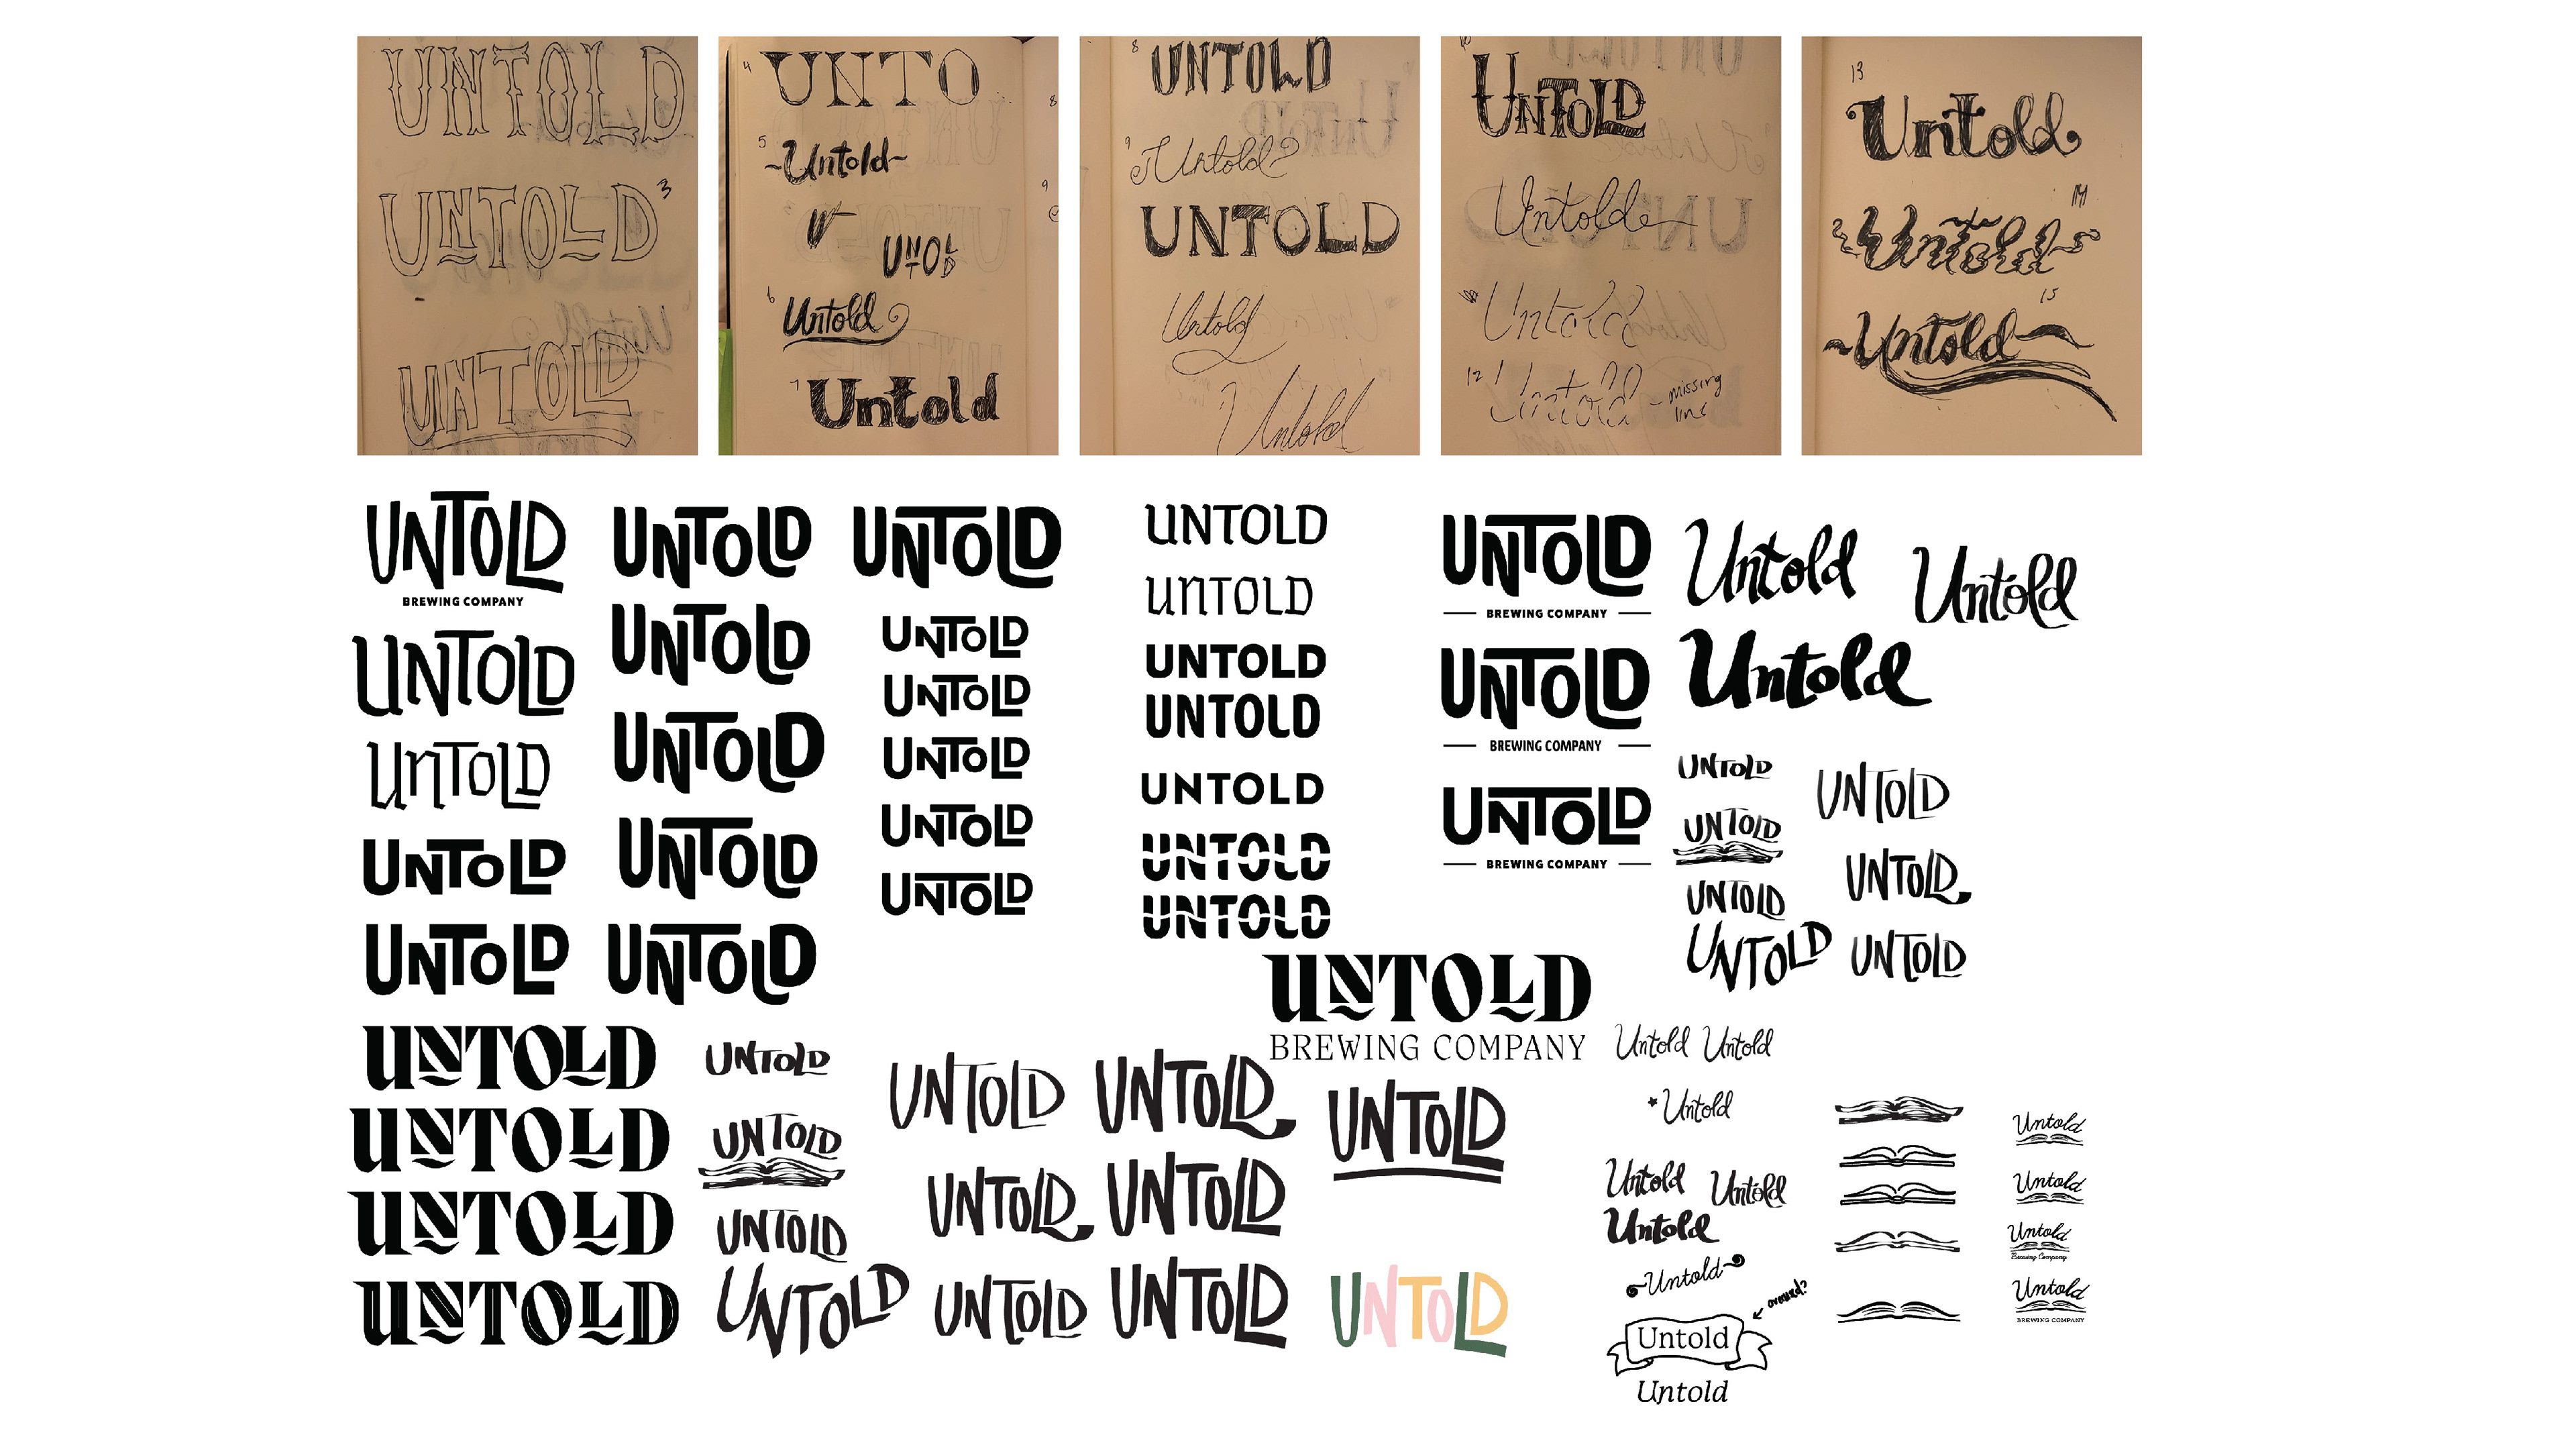 UNTOLD
UNTOLD 3
UNTOLD
4 UNTO
5 ~Untold~
UNTOLD
6 Untold
7 Untold
8
9
8 UNTOLD
9 Untold
UNTOLD
Untold
Untold
10 UNTOLD
Untold
Untold
12 Untold - missing line
13
Untold
14
Untold
15
~Untold~
UNTOLD
BREWING COMPANY
UNTOLD
UNTOLD
UNTOLD
UNTOLD
UNTOLD
UNTOLD
UNTOLD
UNTOLD
UNTOLD
UNTOLD
UNTOLD
UNTOLD
UNTOLD
UNTOLD
UNTOLD
UNTOLD
UNTOLD
UNTOLD
UNTOLD
UNTOLD
UNTOLD
UNTOLD
UNTOLD
UNTOLD
BREWING COMPANY
UNTOLD
BREWING COMPANY
UNTOLD
BREWING COMPANY
Untold
Untold
Untold
UNTOLD
UNTOLD
UNTOLD
UNTOLD
UNTOLD
UNTOLD
UNTOLD
UNTOLD
BREWING COMPANY
UNTOLD
UNTOLD
UNTOLD
UNTOLD
UNTOLD
UNTOLD
UNTOLD
UNTOLD
UNTOLD
UNTOLD
UNTOLD
UNTOLD
UNTOLD
UNTOLD
UNTOLD
UNTOLD
Untold Untold
Untold
Untold
Untold
Untold
Untold
around?
Untold
Untold
Untold
Untold
Untold
Brewing Company
Untold
BREWING COMPANY